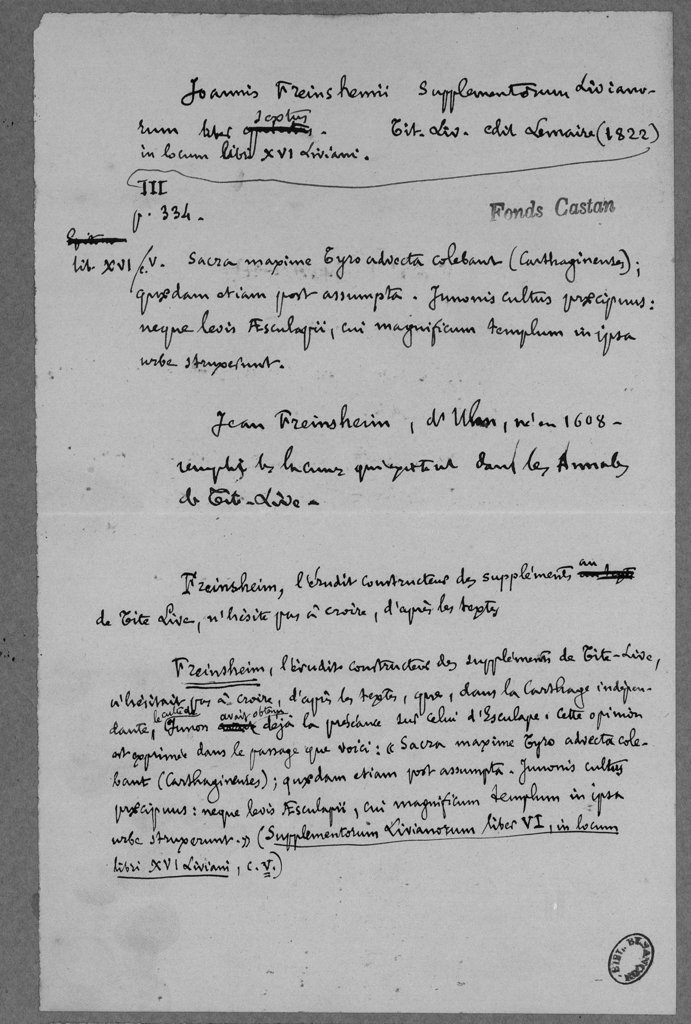 Joannis Freinshemii Supplementorum Liviano-
rum liber sextus. Tit. Liv. edit Lemaire (1822)
in locum libri XVI Liviani.
III
p. 334.
Fonds Castan
lib. XVI, c. V. Sacra maxime Tyro advecta colebant (Carthaginenses);
quædam etiam post assumpta. Junonis cultus præcipuus:
neque levis Æsculapii, cui magnificum templum in ipsa
urbe struxerunt.
Jean Freinsheim, d'Ulm, né en 1608 -
remplit les lacunes qui existent dans les Annales
de Tite-Live -
Freinsheim, l'érudit constructeur des suppléments au
de Tite Live, n'hésite pas à croire, d'après les textes
Freinsheim, l'érudit constructeur des suppléments de Tite-Live,
n'hésitait pas à croire, d'après les textes, que, dans la Carthage indépen-
dante, le culte de Junon avait obtenu déjà la préséance sur celui d'Esculape. Cette opinion
est exprimée dans le passage que voici : « Sacra maxime Tyro advecta cole-
bant (Carthaginenses); quædam etiam post assumpta. Junonis cultus
præcipuus: neque levis Æsculapii, cui magnificum templum in ipsa
urbe struxerunt. » (Supplementorum Livianorum liber VI, in locum
libri XVI Liviani, c. V.)
BIBL. BESANÇON